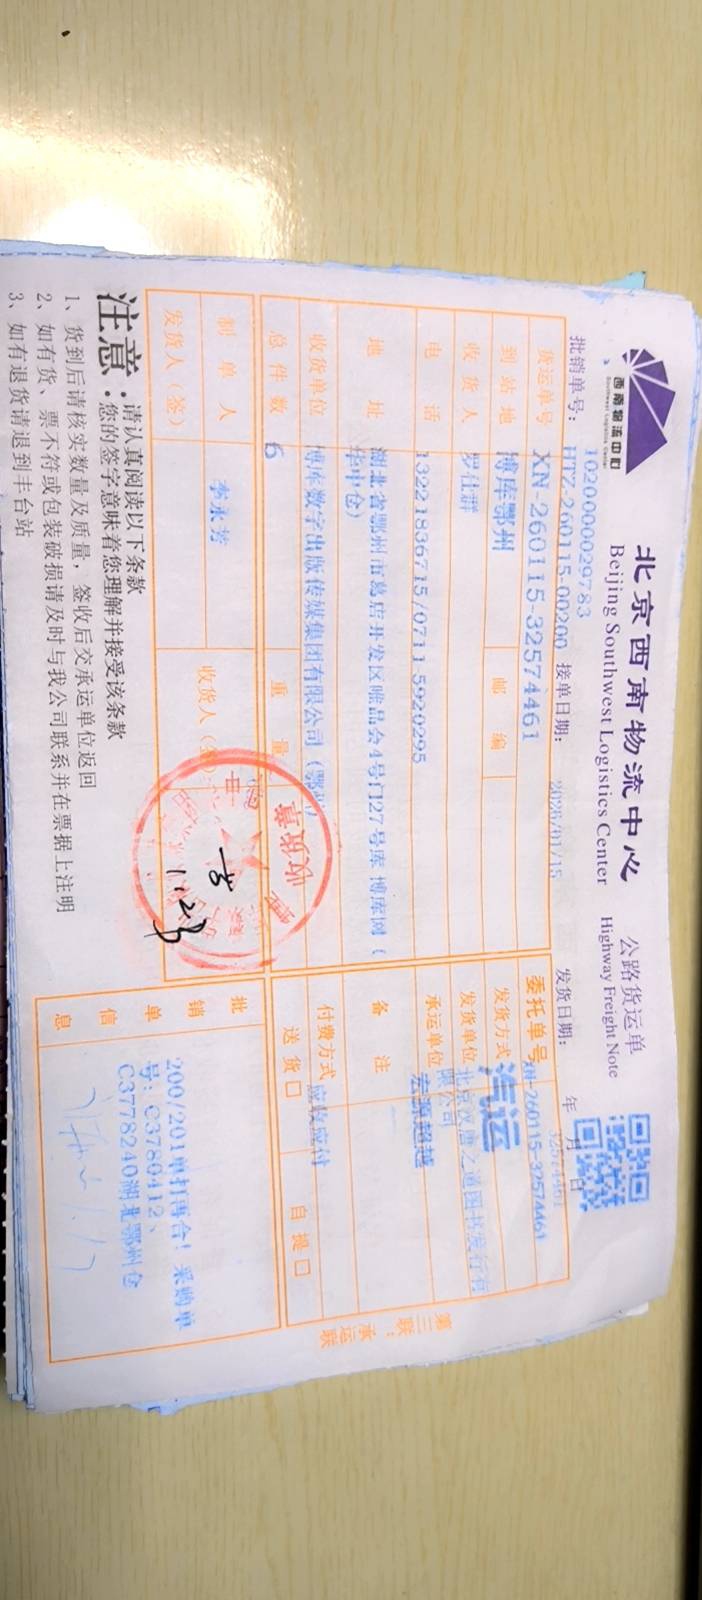 西南物流中心
Southwest Logistics Center
北京西南物流中心
公路货运单
Beijing Southwest Logistics Center
Highway Freight Note
1020000029783
批销单号: HTZ-260115-00200 接单日期: 2026/01/15 发货日期: 年 月 日
32574461
货运单号 XN-260115-32574461 委托单号 XN-260115-32574461
到站地 博库鄂州 邮编 发货方式 汽运
收货人 罗仕群 发货单位 北京汉唐之道图书发行有限公司
电话 13221836715/0711 5920295 承运单位 宏源超越
地址 湖北省鄂州市葛店开发区唯品会4号门27号库 博库网(华中仓) 备注
收货单位 博库数字出版传媒集团有限公司(鄂州) 付费方式 应收应付
总件数 6 重量 送货□ 自提□
制单人 李永芳 收货人(签):
发货人(签)
收货章
批销单信息
200/201单打再合!采购单
号: C3780412、
C3778240湖北鄂州仓
第三联:承运联
注意: 请认真阅读以下条款
您的签字意味着您理解并接受该条款
1、货到后请核实数量及质量,签收后交承运单位返回
2、如有货、票不符或包装破损请及时与我公司联系并在票据上注明
3、如有退货请退到丰台站